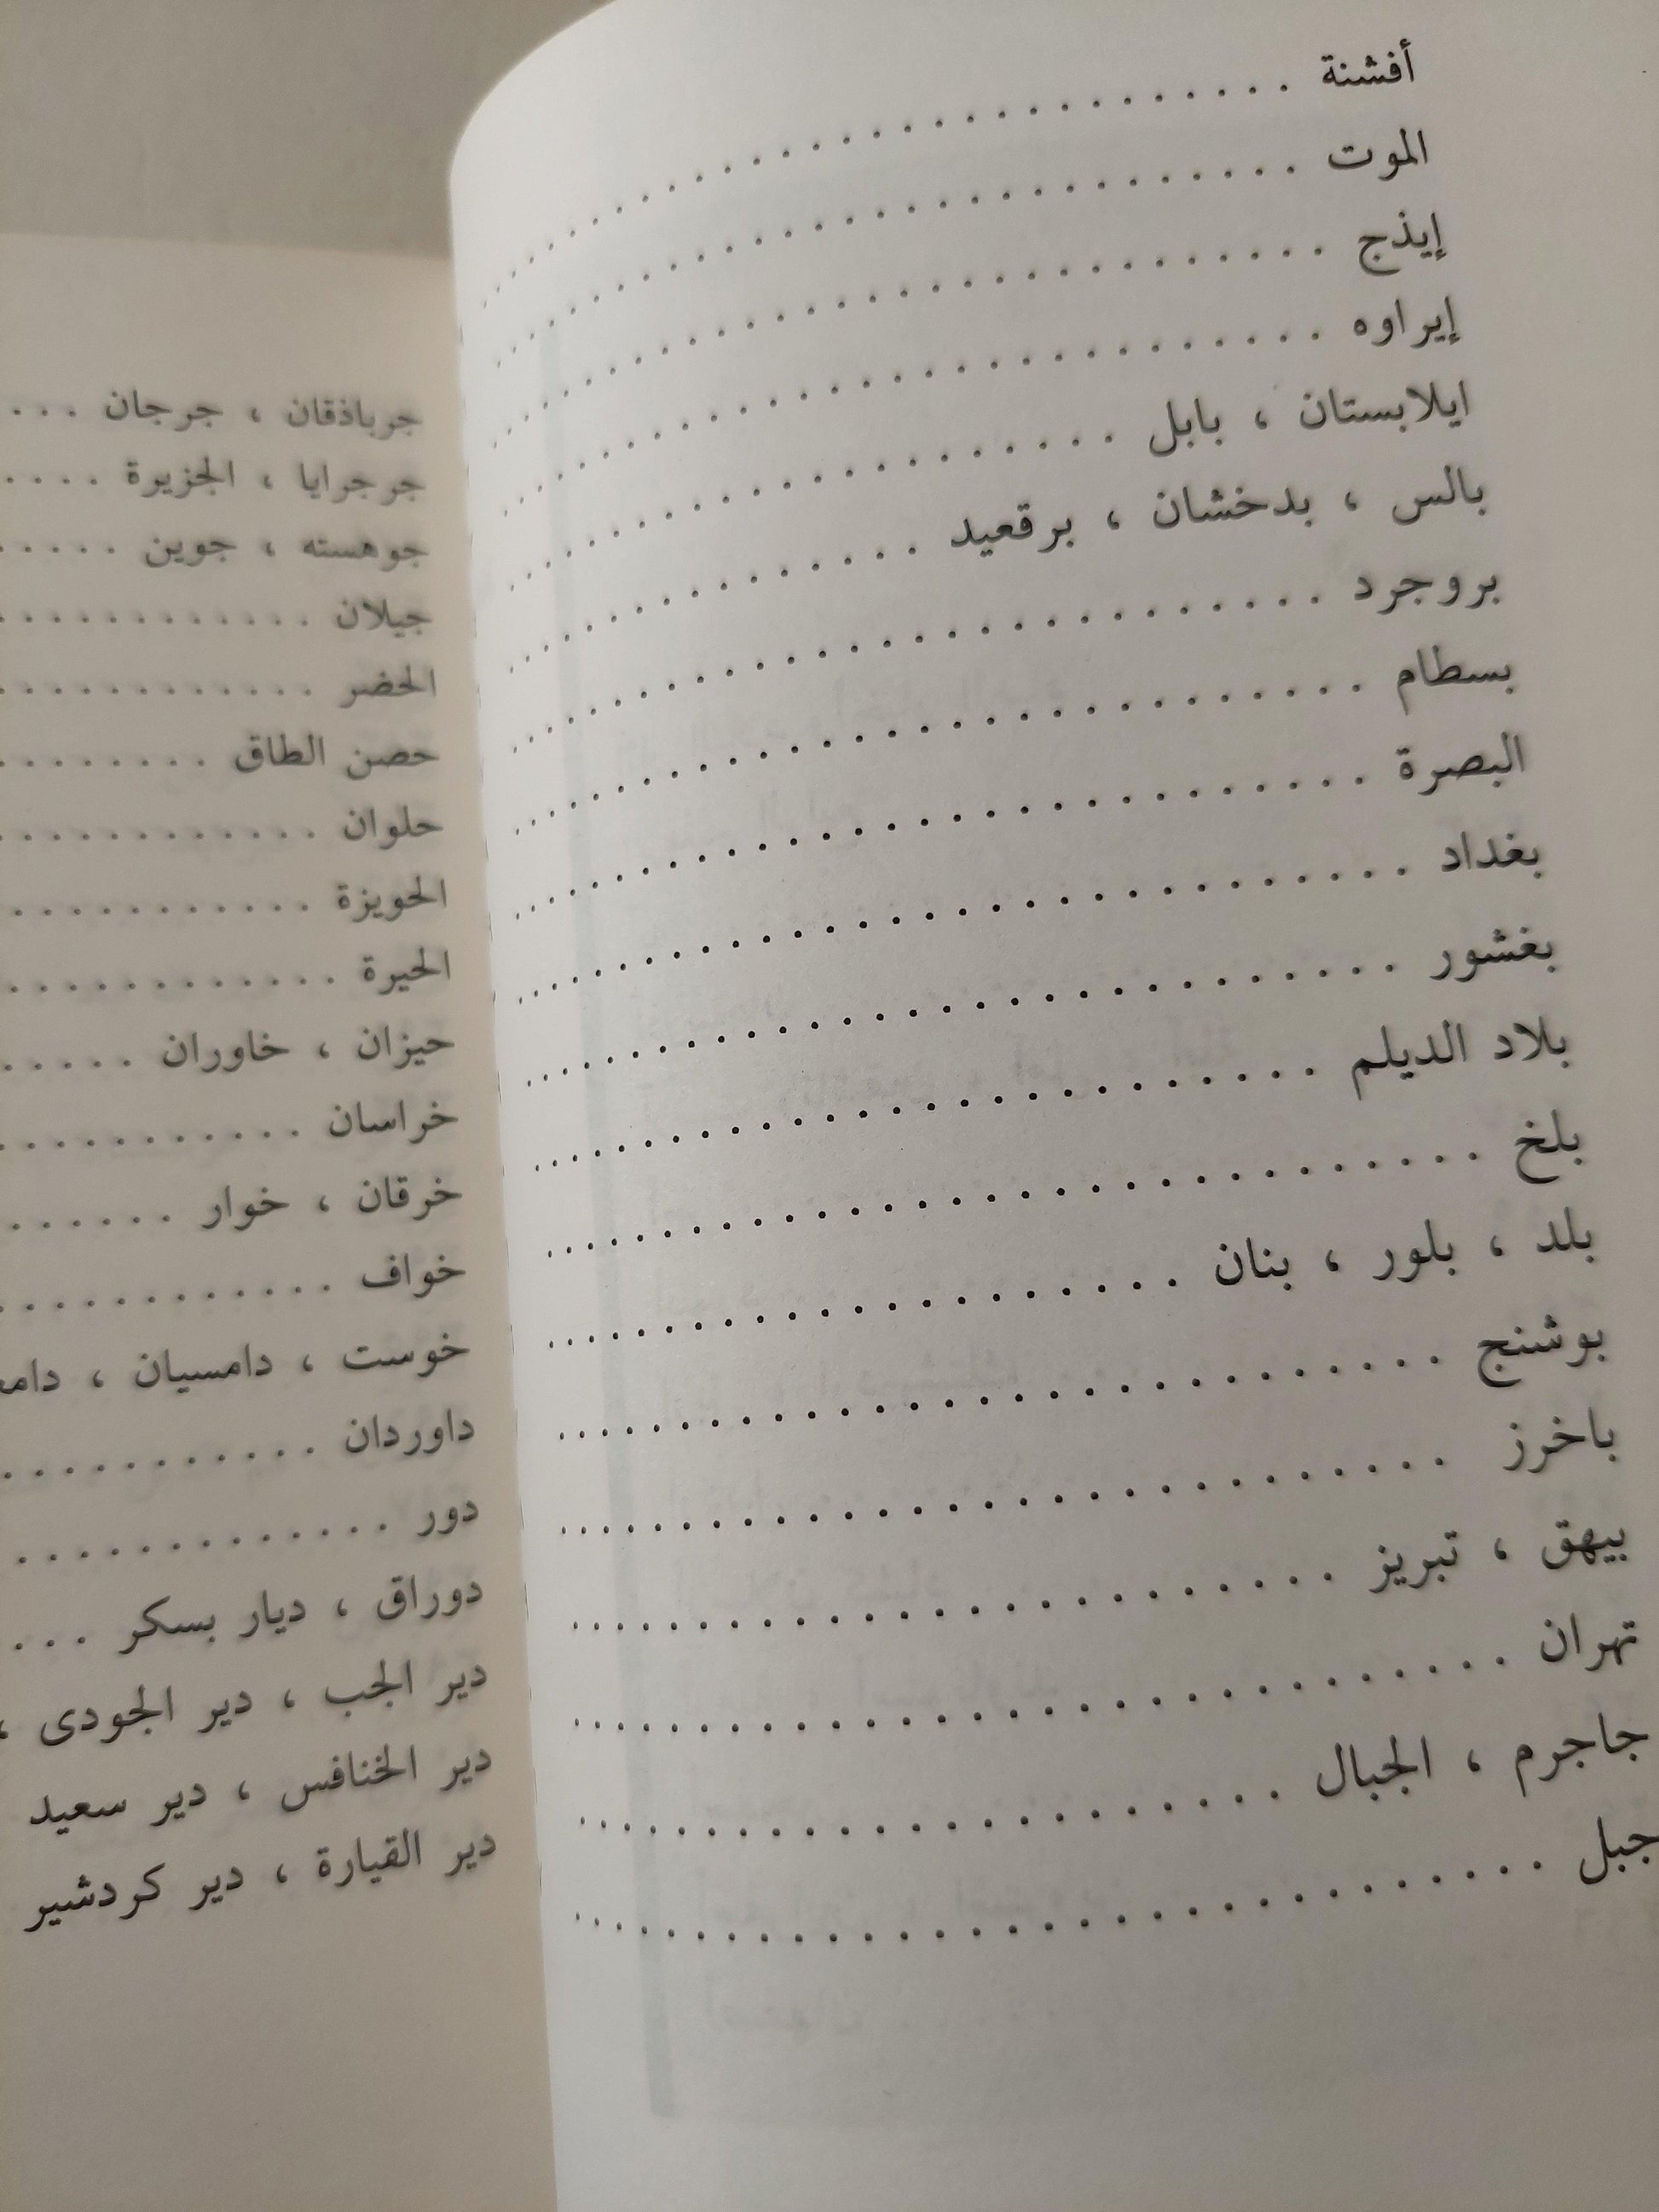 أفشنة . . . . . . . . . . . . . . . . . . . . . . . .
الموت . . . . . . . . . . . . . . . . . . . . . . . .
إيذج . . . . . . . . . . . . . . . . . . . . . . . .
إيراوه . . . . . . . . . . . . . . . . . . . . . . . .
ايلابستان ، بابل . . . . . . . . . . . . . . . . . .
بالس ، بدخشان ، برقعيد . . . . . . . . . . . . . .
بروجرد . . . . . . . . . . . . . . . . . . . . . . . .
بسطام . . . . . . . . . . . . . . . . . . . . . . . .
البصرة . . . . . . . . . . . . . . . . . . . . . . . .
بغداد . . . . . . . . . . . . . . . . . . . . . . . .
بغشور . . . . . . . . . . . . . . . . . . . . . . . .
بلاد الديلم . . . . . . . . . . . . . . . . . . . . .
بلخ . . . . . . . . . . . . . . . . . . . . . . . .
بلد ، بلور ، بنان . . . . . . . . . . . . . . . . . .
بوشنج . . . . . . . . . . . . . . . . . . . . . . . .
باخرز . . . . . . . . . . . . . . . . . . . . . . . .
بيهق ، تبريز . . . . . . . . . . . . . . . . . . . . .
تهران . . . . . . . . . . . . . . . . . . . . . . . .
جاجرم ، الجبال . . . . . . . . . . . . . . . . . . .
جبل . . . . . . . . . . . . . . . . . . . . . . . .
جرباذقان ، جرجان . . .
جرجرايا ، الجزيرة . . . .
جوهسته ، جوين . . . . .
جيلان . . . . . . . . . . .
الحضر . . . . . . . . . . .
حصن الطاق . . . . . . . .
حلوان . . . . . . . . . . .
الحويزة . . . . . . . . . . .
الحيرة . . . . . . . . . . . .
حيزان ، خاوران . . . . .
خراسان . . . . . . . . . . .
خرقان ، خوار . . . . . .
خواف . . . . . . . . . . . .
خوست ، دامسيان ،
داوردان . . . . . . . . . . .
دور . . . . . . . . . . . . .
دوراق ، ديار بسكر . . .
دير الجب ، دير الجودى ،
دير الخنافس ، دير سعيد
دير القيارة ، دير كردشير